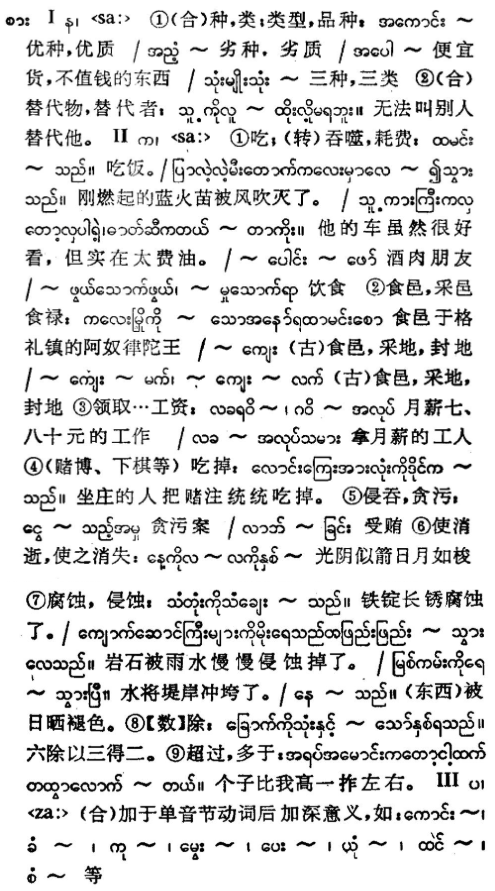 စား I န၊ <sa:> ①(合)种,类;类型,品种: အကောင်း ~
优种,优质 / အညံ့ ~ 劣种,劣质 / အပေါ ~ 便宜
货,不值钱的东西 / သုံးမျိုးသုံး ~ 三种,三类 ②(合)
替代物,替代者: သူ့ကိုလူ ~ ထိုးလို့မရဘူး။ 无法叫别人
替代他。 II က၊ <sa:> ①吃;(转)吞噬,耗费: ထမင်း
~ သည်။ 吃饭。/ ပြာလဲ့လဲ့မီးတောက်ကလေးမှာလေ ~ ၍သွား
သည်။ 刚燃起的蓝火苗被风吹灭了。 / သူ့ကားကြီးကလှ
တော့လှပါရဲ့၊ဓာတ်ဆီကတယ် ~ တာကိုး။ 他的车虽然很好
看,但实在太费油。 / ~ ပေါင်း ~ ဖော် 酒肉朋友
/ ~ ဖွယ်သောက်ဖွယ်၊ ~ မှုသောက်ရာ 饮食 ②食邑,采邑
食禄: ကလေးမြို့ကို ~ သောအနော်ရထာမင်းစော 食邑于格
礼镇的阿奴律陀王 / ~ ကျေး (古)食邑,采地,封地
/ ~ ကျေး ~ မက်၊ ~ ကျေး ~ လက် (古)食邑,采地,
封地 ③领取…工资: လခရဝိ ~ ၊ ဂဝိ ~ အလုပ် 月薪七、
八十元的工作 / လခ ~ အလုပ်သမား 拿月薪的工人
④(赌博、下棋等)吃掉: လောင်းကြေးအားလုံးကိုဒိုင်က ~
သည်။ 坐庄的人把赌注统统吃掉。 ⑤侵吞,贪污:
ငွေ ~ သည့်အမှု 贪污案 / လာဘ် ~ ခြင်း 受贿 ⑥使消
逝,使之消失: နေ့ကိုလ ~ လကိုနှစ် ~ 光阴似箭日月如梭
⑦腐蚀,侵蚀: သံတုံးကိုသံချေး ~ သည်။ 铁锭长锈腐蚀
了。/ ကျောက်ဆောင်ကြီးများကိုမိုးရေသည်တဖြည်းဖြည်း ~ သွား
လေသည်။ 岩石被雨水慢慢侵蚀掉了。 / မြစ်ကမ်းကိုရေ
~ သွားပြီ။ 水将堤岸冲垮了。/ နေ ~ သည်။ (东西)被
日晒褪色。⑧【数】除: ခြောက်ကိုသုံးနှင့် ~ သော်နှစ်ရသည်။
六除以三得二。⑨超过,多于: အရပ်အမောင်းကတော့ငါ့ထက်
တထွာလောက် ~ တယ်။ 个子比我高一拃左右。 III ပ၊
<za:> (合)加于单音节动词后加深意义,如: ကောင်း ~ ၊
ခံ ~ ၊ ကု ~ ၊ မွေး ~ ၊ ပေး ~ ၊ ယုံ ~ ၊ ထင် ~ ၊
စံ ~ 等